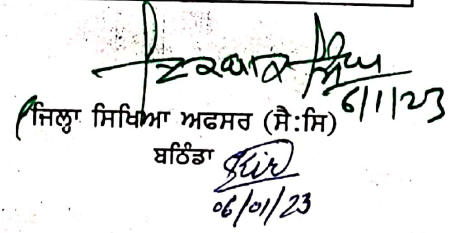 ਇਕਬਾਲ ਸਿੰਘ
6/1/23
ਜਿਲ੍ਹਾ ਸਿਖਿਆ ਅਫਸਰ (ਸੈ:ਸਿ)
ਬਠਿੰਡਾ
06/01/23